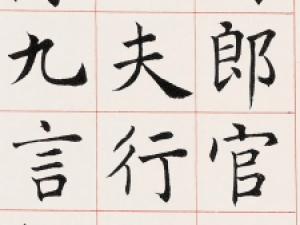 郎官
夫行
九言